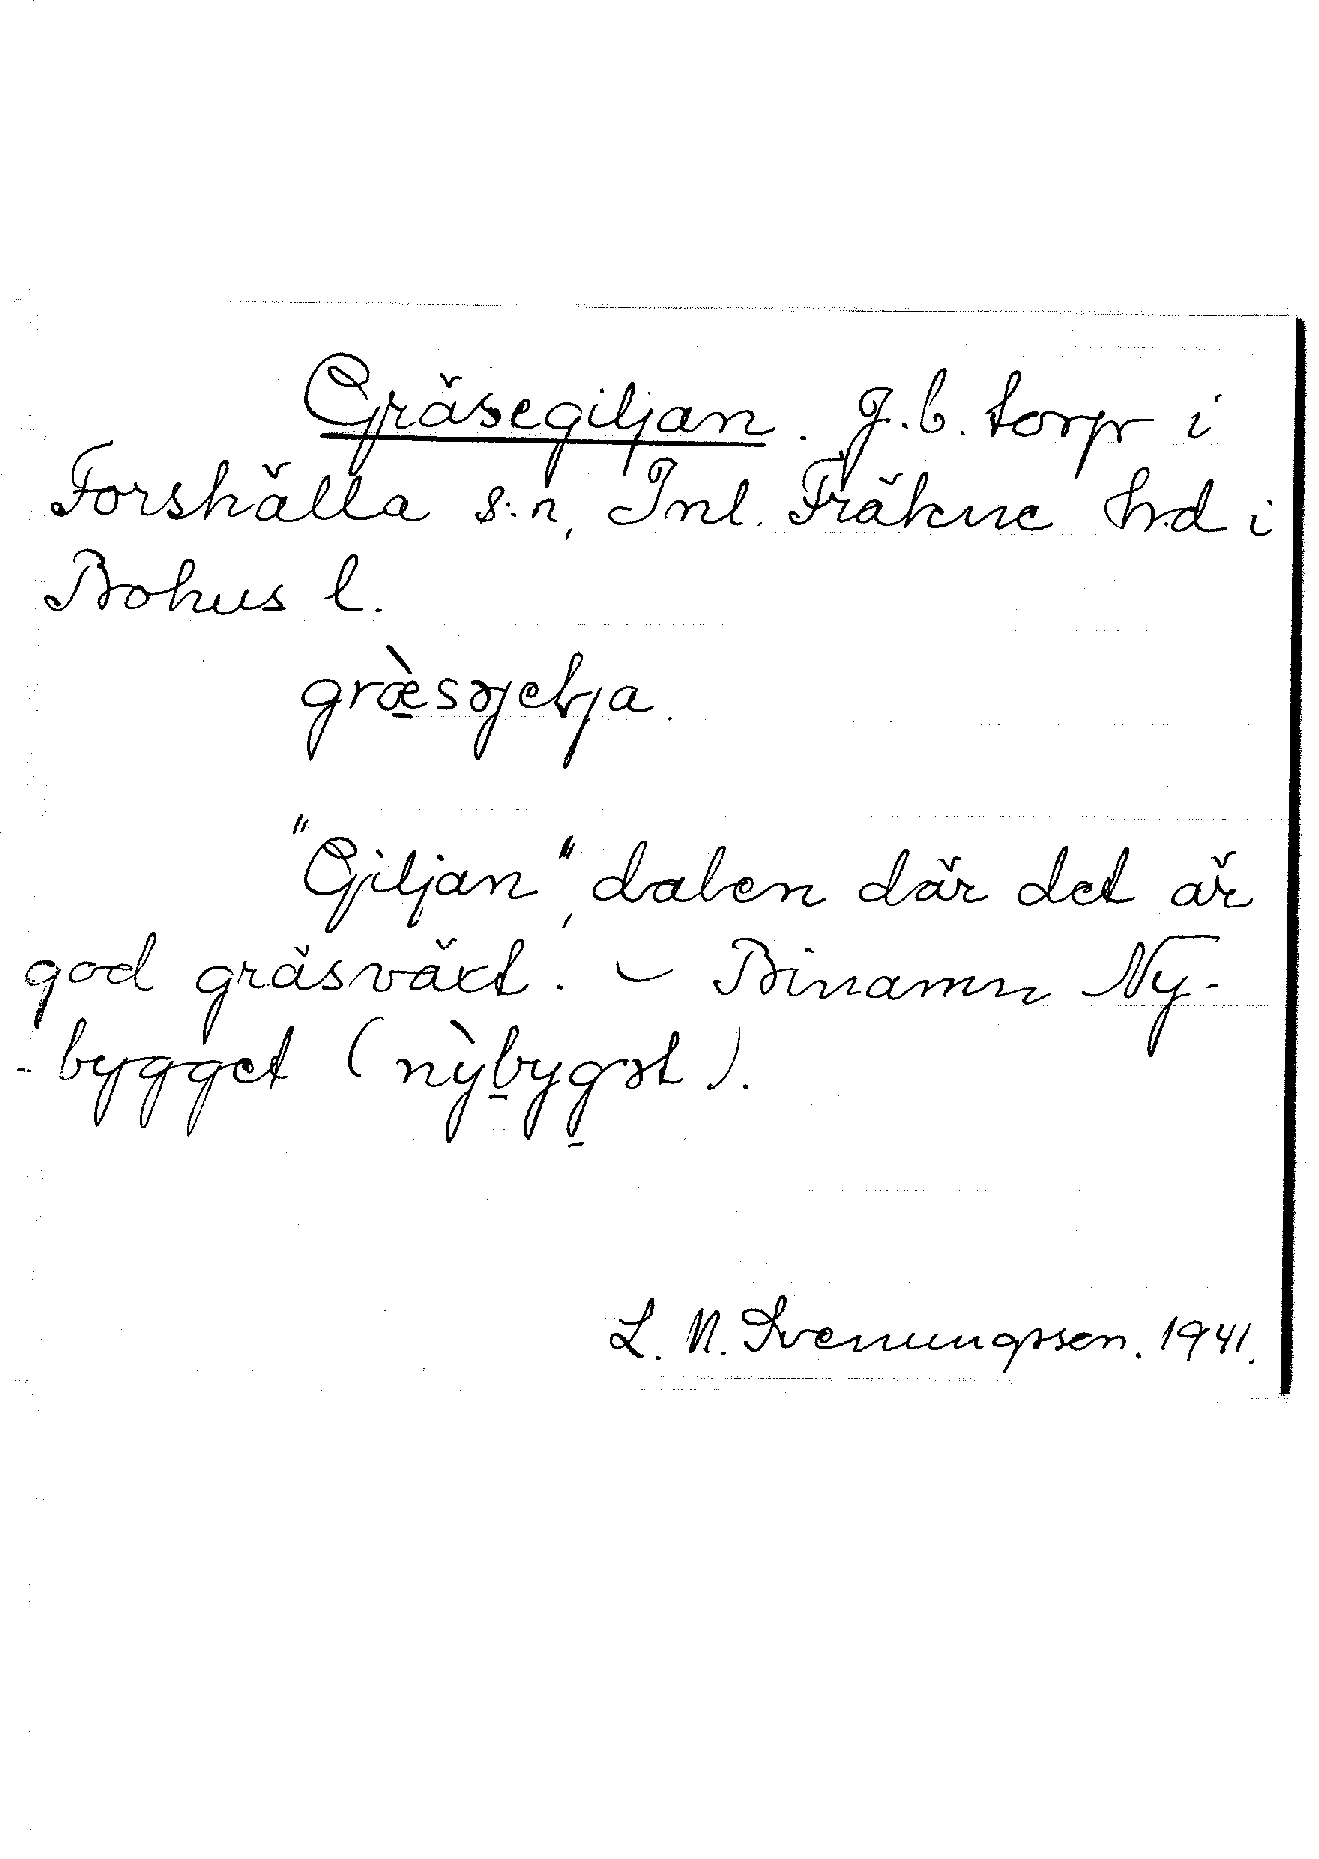 Gräsegiljan. J.b. torp i
Forshälla s:n, Inl. Fräkne hrd i
Bohus l.
græ̀səjelja.
"Giljan", dalen där det är
god gräsväxt. – Binamn Ny-
- bygget (nỳbygət).
L. N. Svenungsson. 1941.